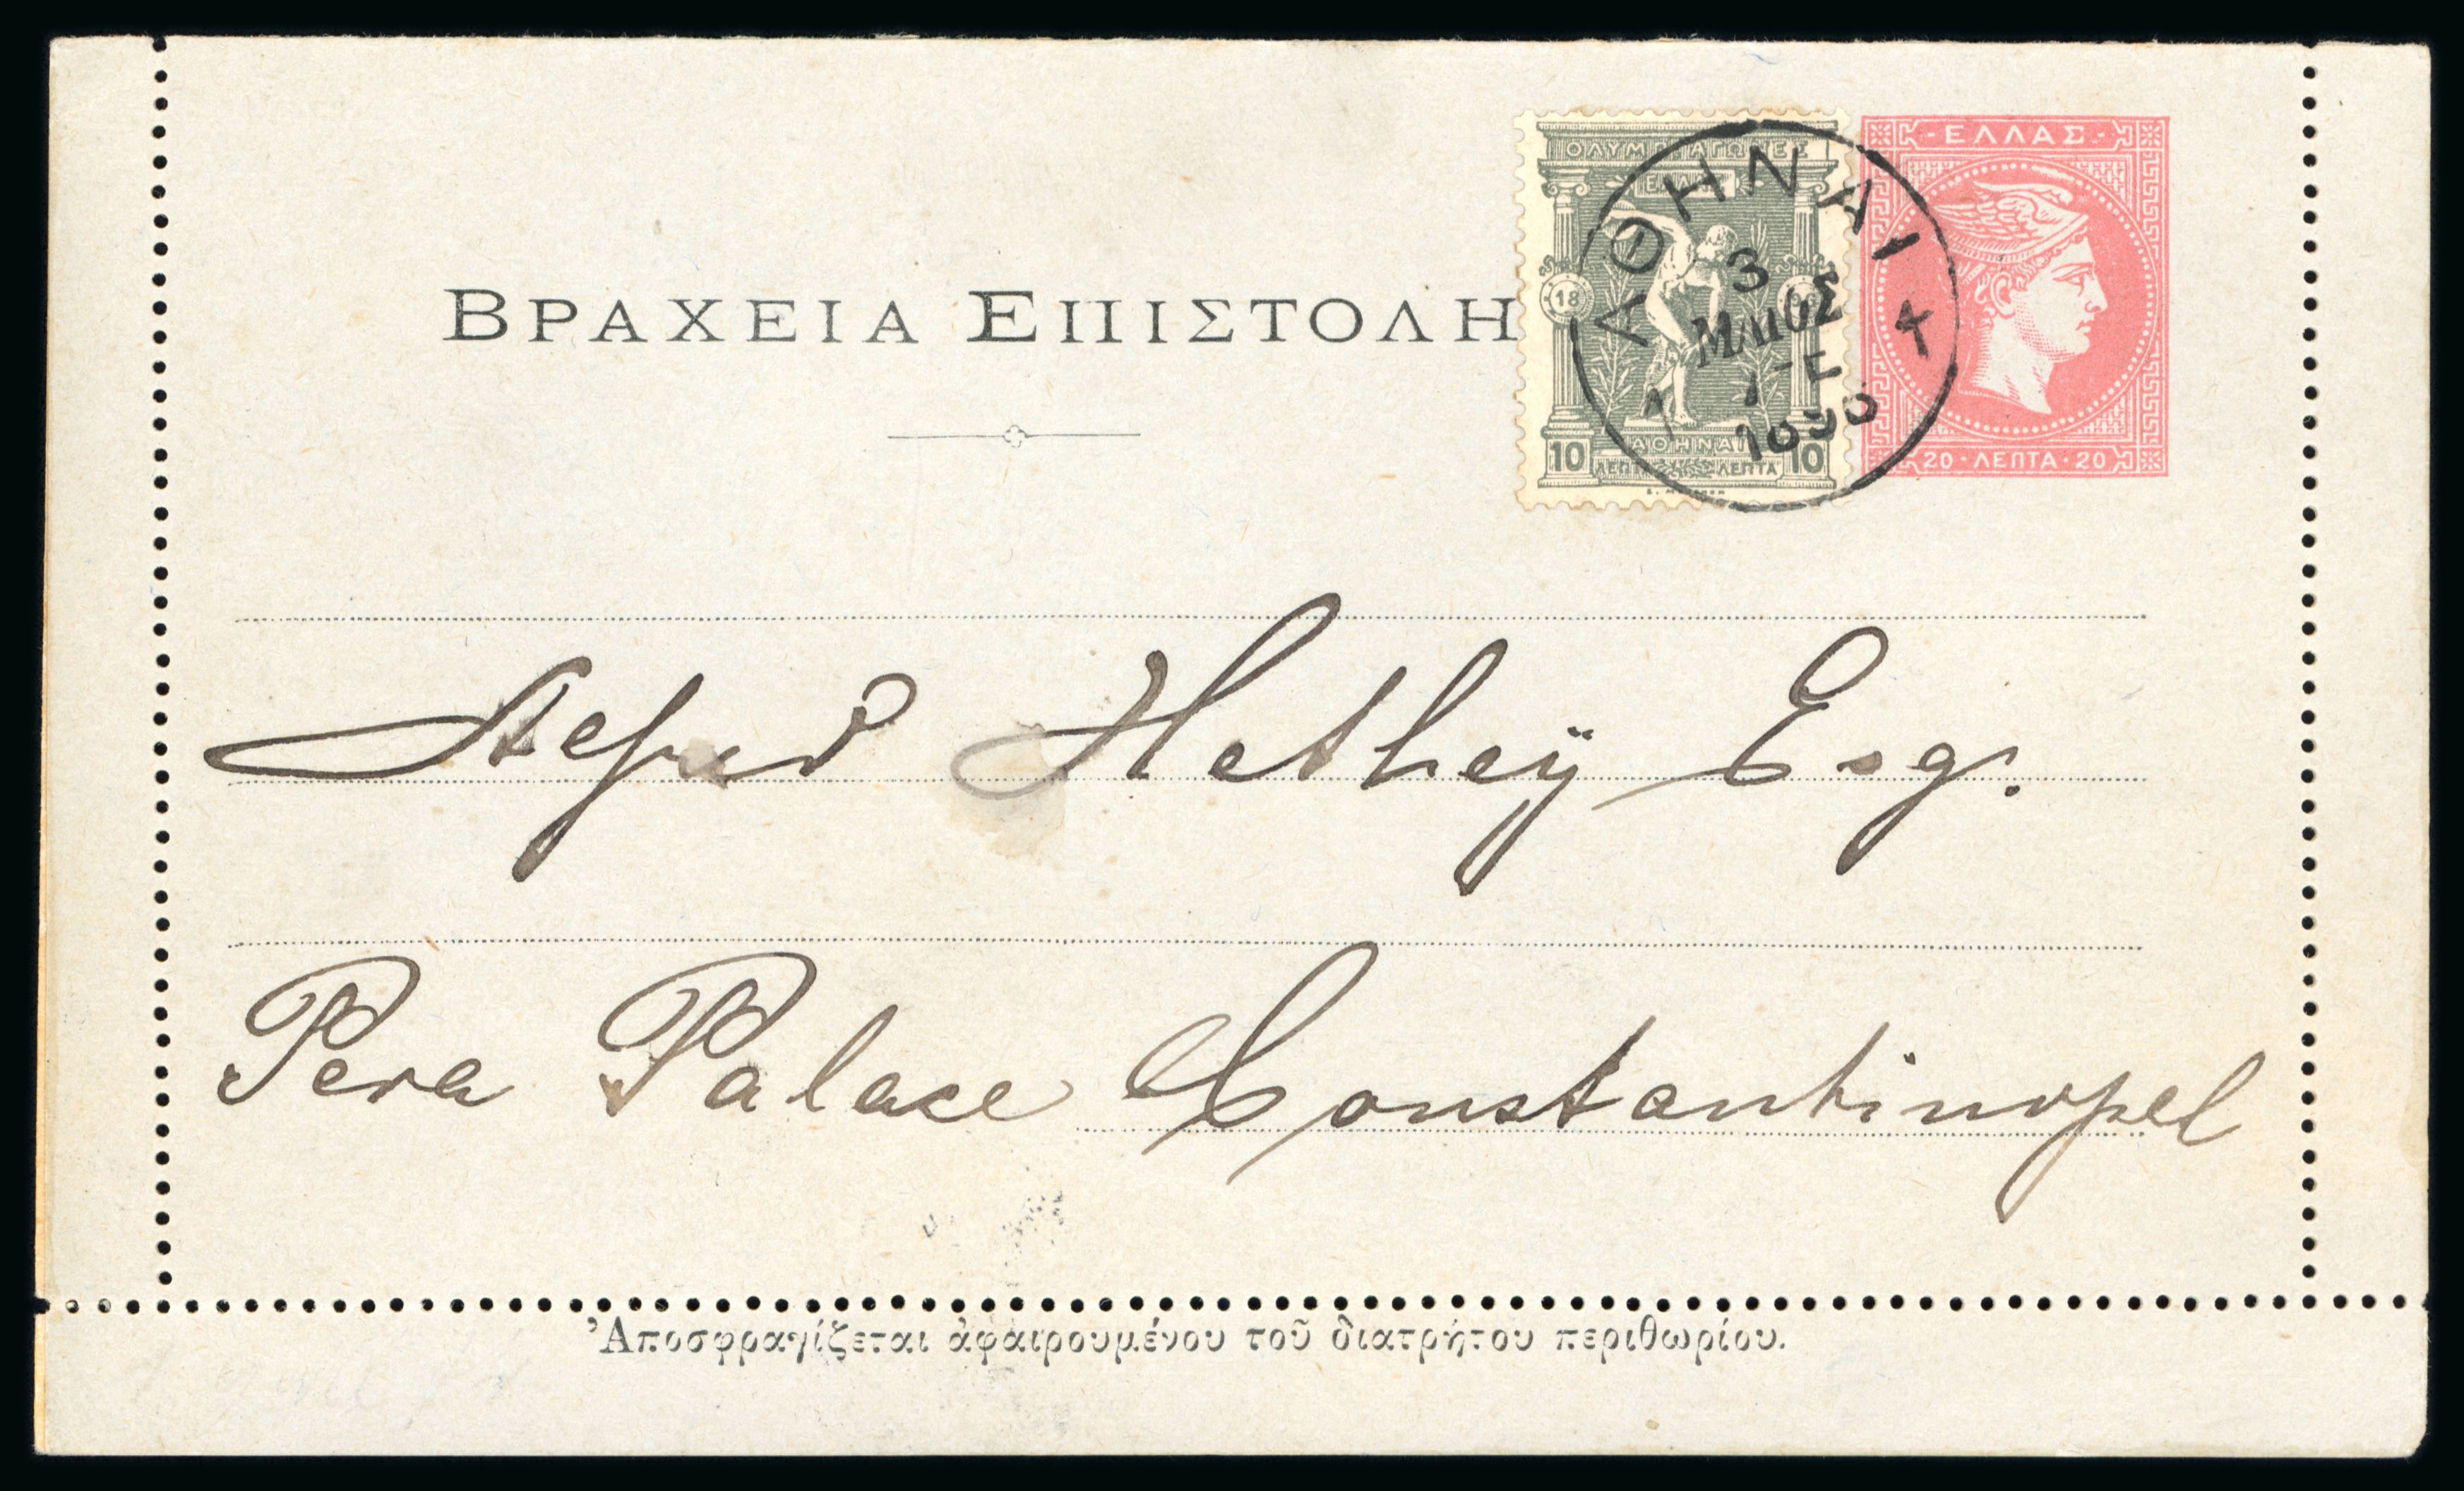 ΒΡΑΧΕΙΑ ΕΠΙΣΤΟΛΗ
ΟΛΥΜΠ. ΑΓΩΝΕΣ
18
ΑΘΗΝΑΙ
10 10
ΛΕΠΤΑ ΛΕΠΤΑ
ΑΘΗΝΑΙ
3
4
-ΕΛΛΑΣ-
20·ΛΕΠΤΑ·20
Alfred Hethey Esq.
Pera Palace Constantinopel
Ἀποσφραγίζεται ἀφαιρουμένου τοῦ διατρήτου περιθωρίου.